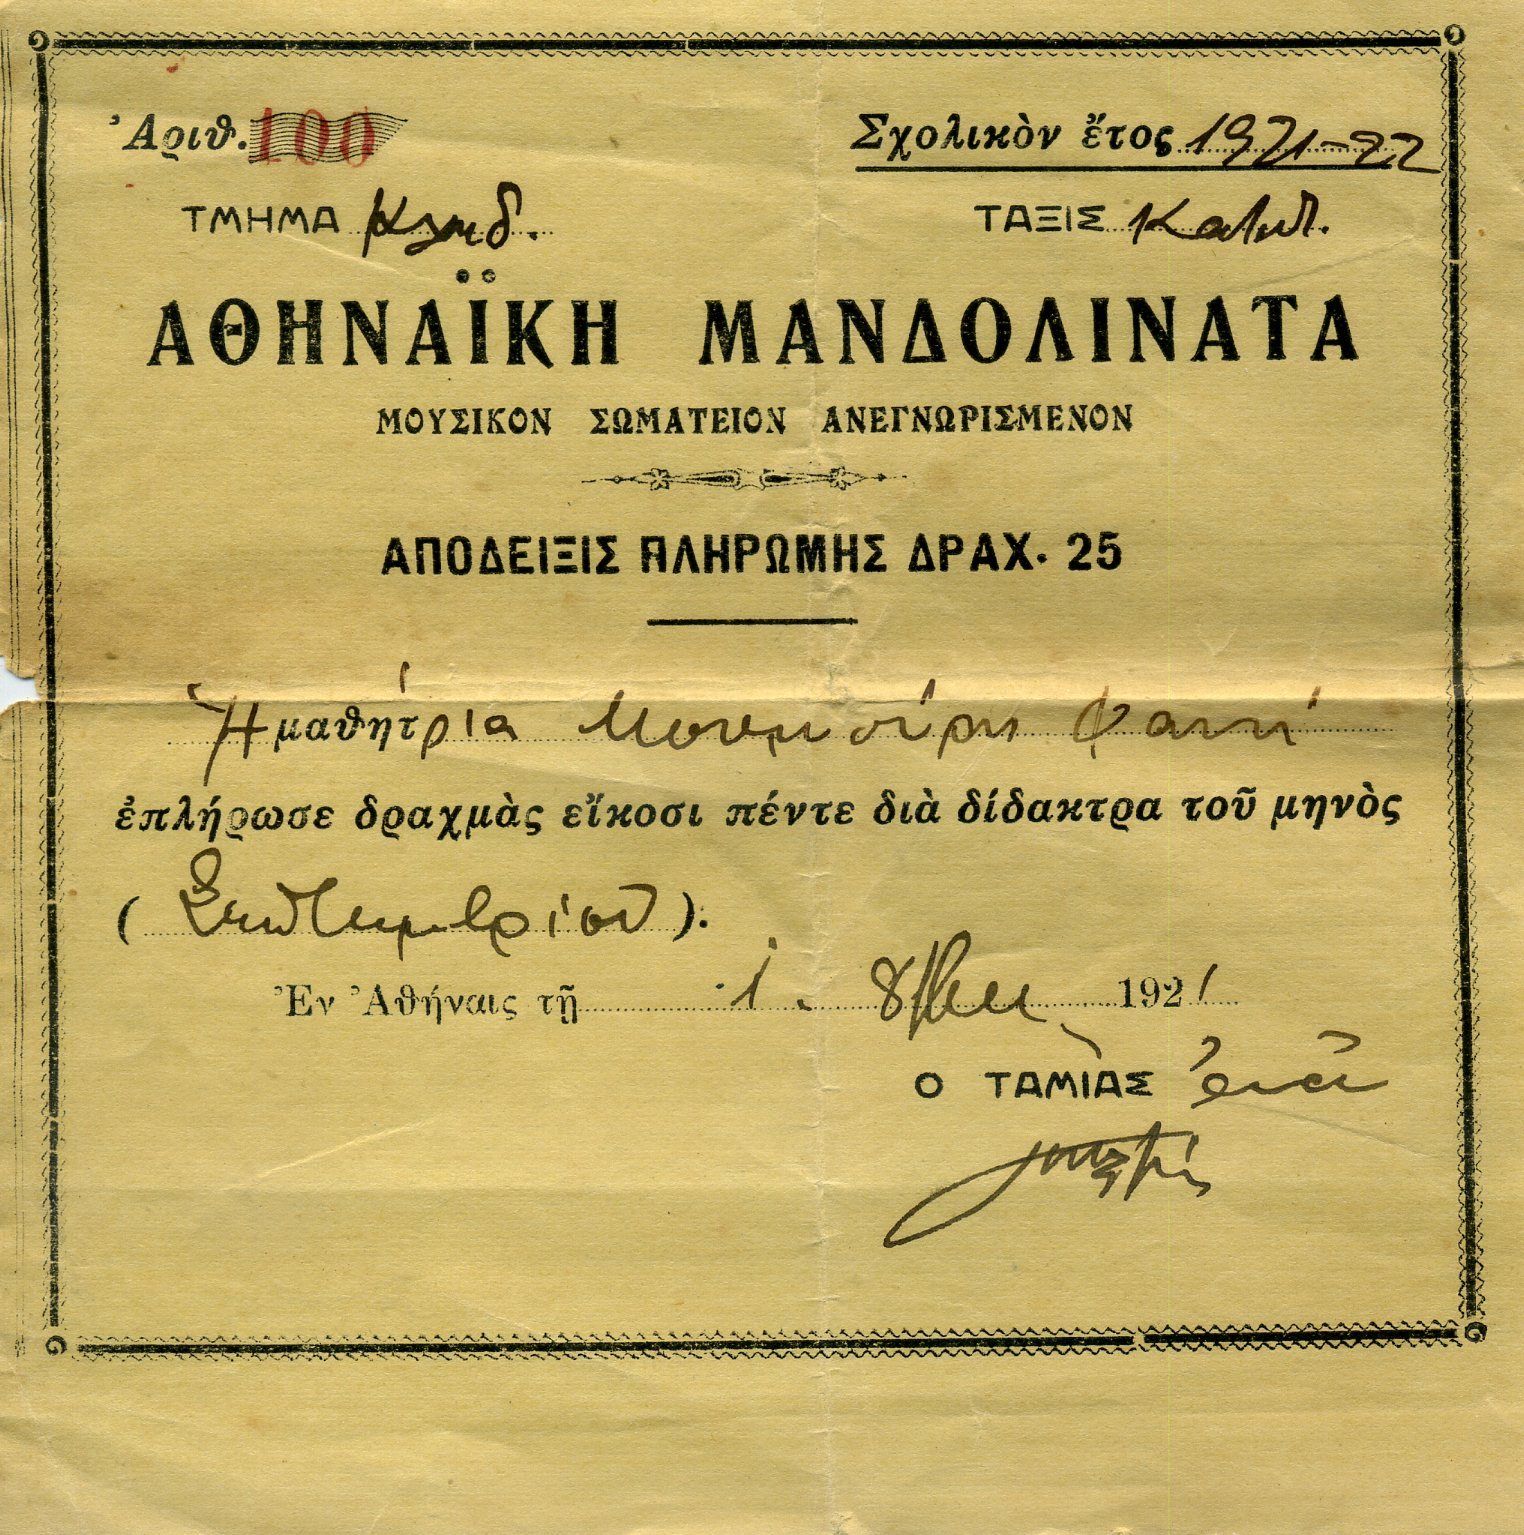 Ἀριθ. 100
Σχολικὸν ἔτος 1921-22
ΤΜΗΜΑ
ΤΑΞΙΣ
ΑΘΗΝΑΪΚΗ ΜΑΝΔΟΛΙΝΑΤΑ
ΜΟΥΣΙΚΟΝ ΣΩΜΑΤΕΙΟΝ ΑΝΕΓΝΩΡΙΣΜΕΝΟΝ
ΑΠΟΔΕΙΞΙΣ ΠΛΗΡΩΜΗΣ ΔΡΑΧ. 25
Ἡ μαθήτρια Φανή
ἐπλήρωσε δραχμὰς εἴκοσι πέντε διὰ δίδακτρα τοῦ μηνὸς
(Σεπτεμβρίου).
Ἐν Ἀθήναις τῇ 1. 8βρίου 1921
Ο ΤΑΜΙΑΣ